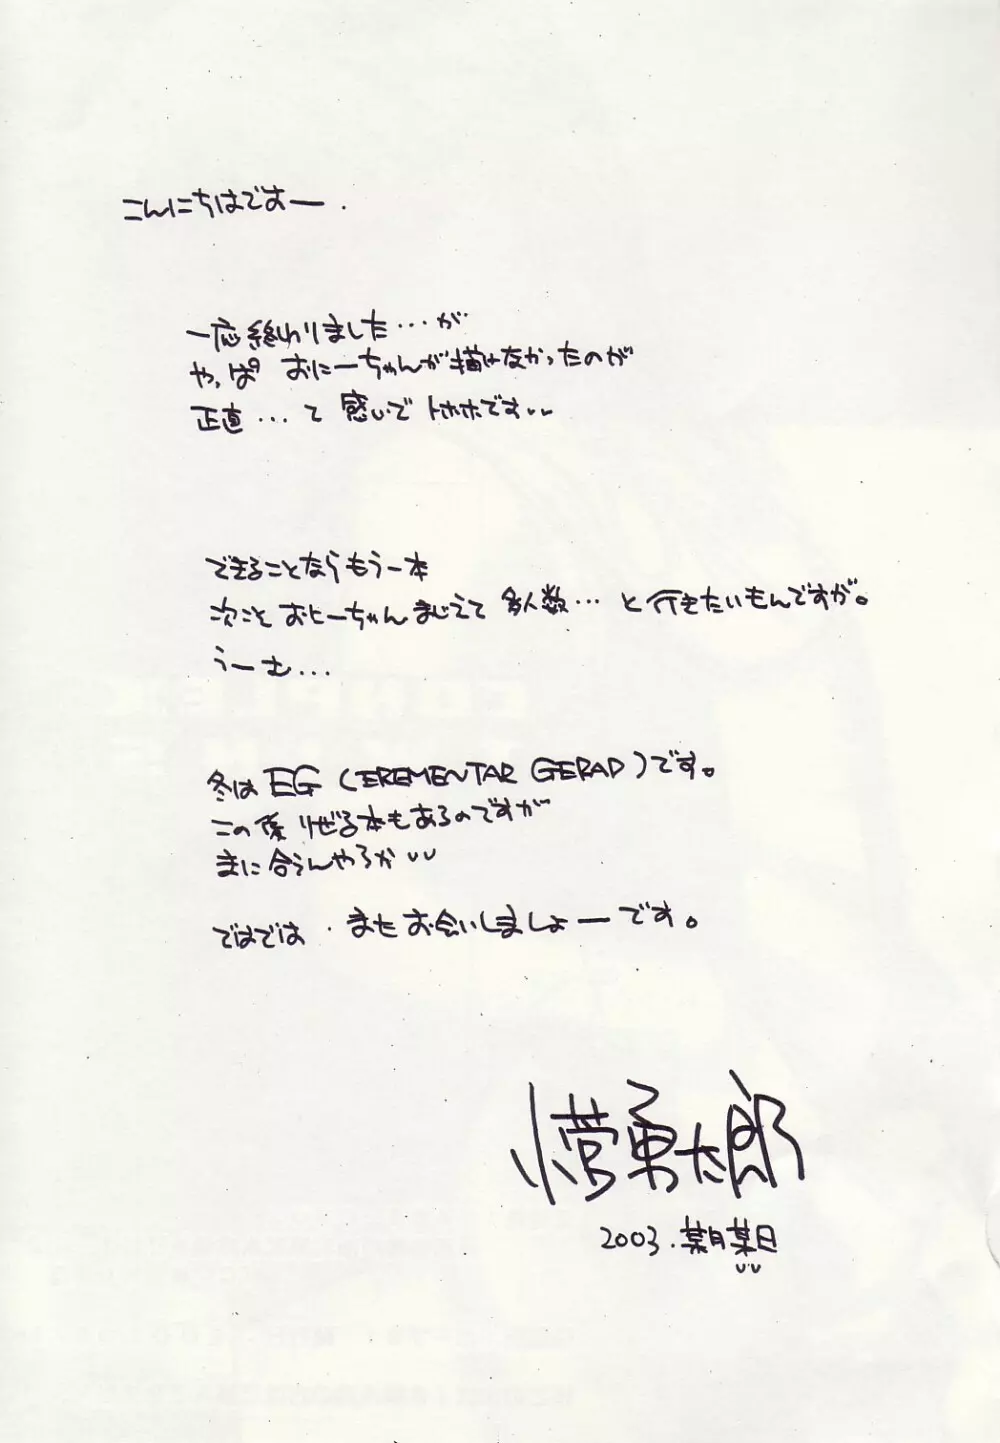 こんにちはですー.
一応終わりました…が
やっぱ おにーちゃんが描けなかったのが
正直…て感じで トホホです
できることならもう一本
次こそ おにーちゃんまじえて 多人数…と行きたいもんですが。
うーむ…
冬は EG (EREMENTAR GERAD)です。
この係 りぜる本もあるのですが
まに合うんやろか
ではでは.またお会いしましょーです。
小菅勇太郎
2003.某月某日